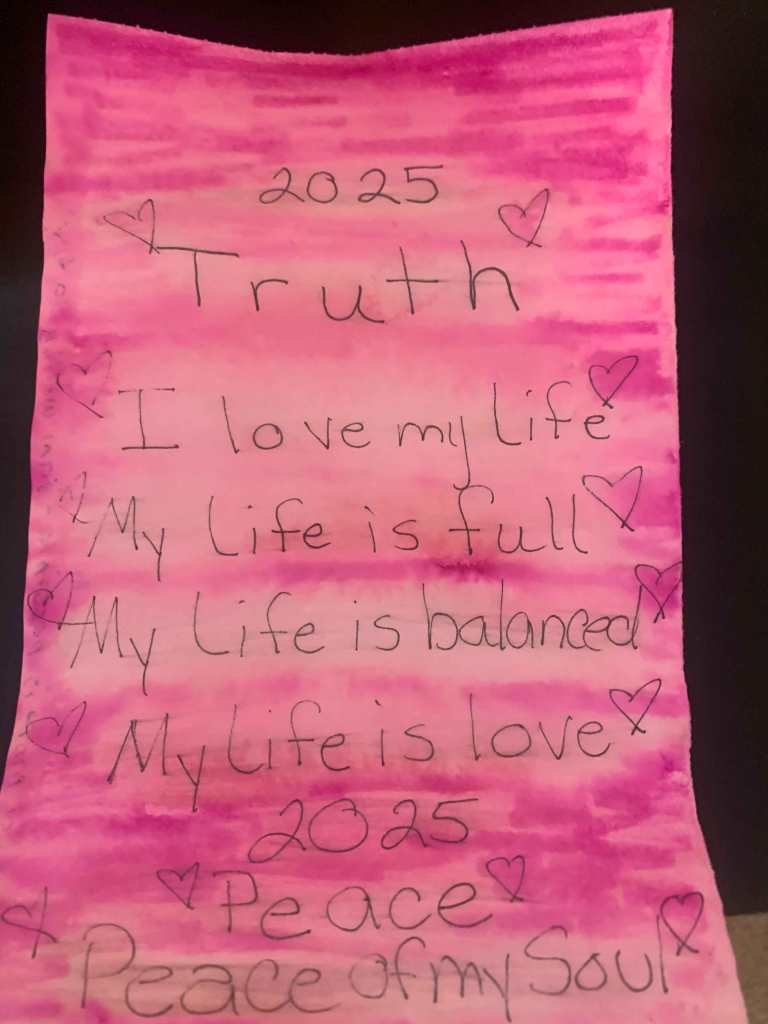 2025
Truth
I love my life
My life is full
My life is balanced
My life is love
2025
Peace
Peace of my Soul